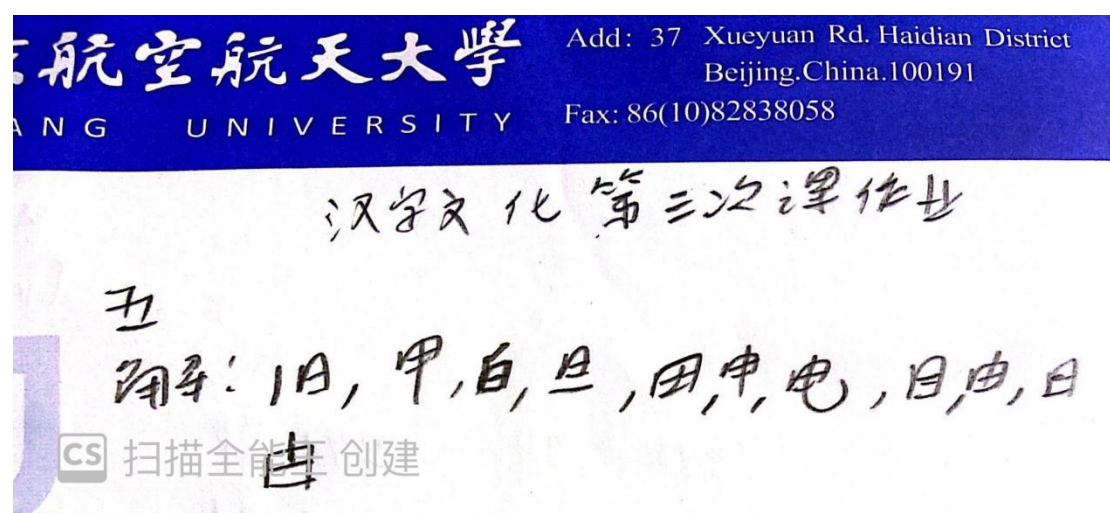 航空航天大學
ANG UNIVERSITY
Add: 37 Xueyuan Rd. Haidian District
Beijing.China.100191
Fax: 86(10)82838058
汉字文化第三次课作业
五
旧,甲,白,旦,田,申,电,目,由,日
CS 扫描全能王 创建